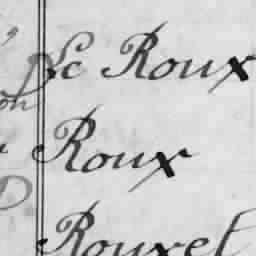 Le Roux
Roux
Rouxel